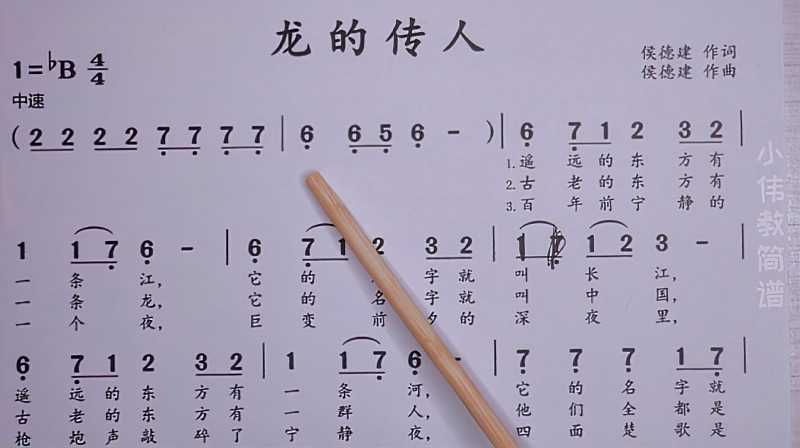 龙的传人
1=♭B 4/4
侯德建 作词
侯德建 作曲
中速
(2 2 2 2 7 7 7 7 | 6 6 5 6 - ) | 6 7 1 2 3 2 |
1.遥 远 的 东 方 有
2.古 老 的 东 方 有
3.百 年 前 宁 静 的
1 1 7 6 - | 6 7 1 2 3 2 | 1 7 1 2 3 - |
一 条 江, 它 的 字 就 叫 长 江,
一 条 龙, 它 的 名 字 就 叫 中 国,
一 个 夜, 巨 变 前 夕 的 深 夜 里,
6 7 1 2 3 2 | 1 1 7 6 - | 7 7 7 7 1 7
遥 远 的 东 方 有 一 条 河, 它 的 名 字 就
古 老 的 东 方 有 一 群 人, 他 们 全 都 是
枪 炮 声 敲 碎 了 宁 静 夜, 四 面 楚 歌 是
小伟教简谱